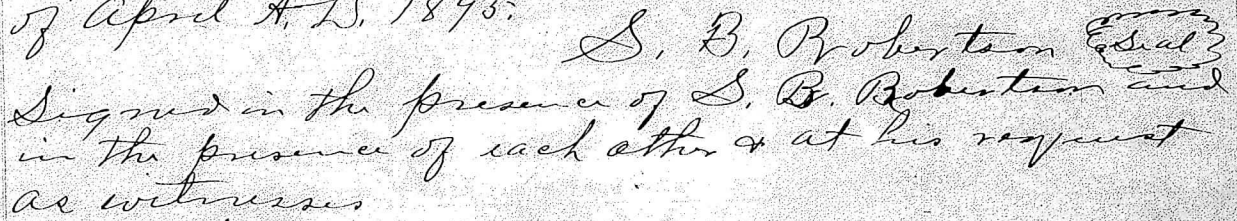 of April A.D. 1895.
S. B. Robertson Seal
Signed in the presence of S. B. Robertson and
in the presence of each other & at his request
as witnesses